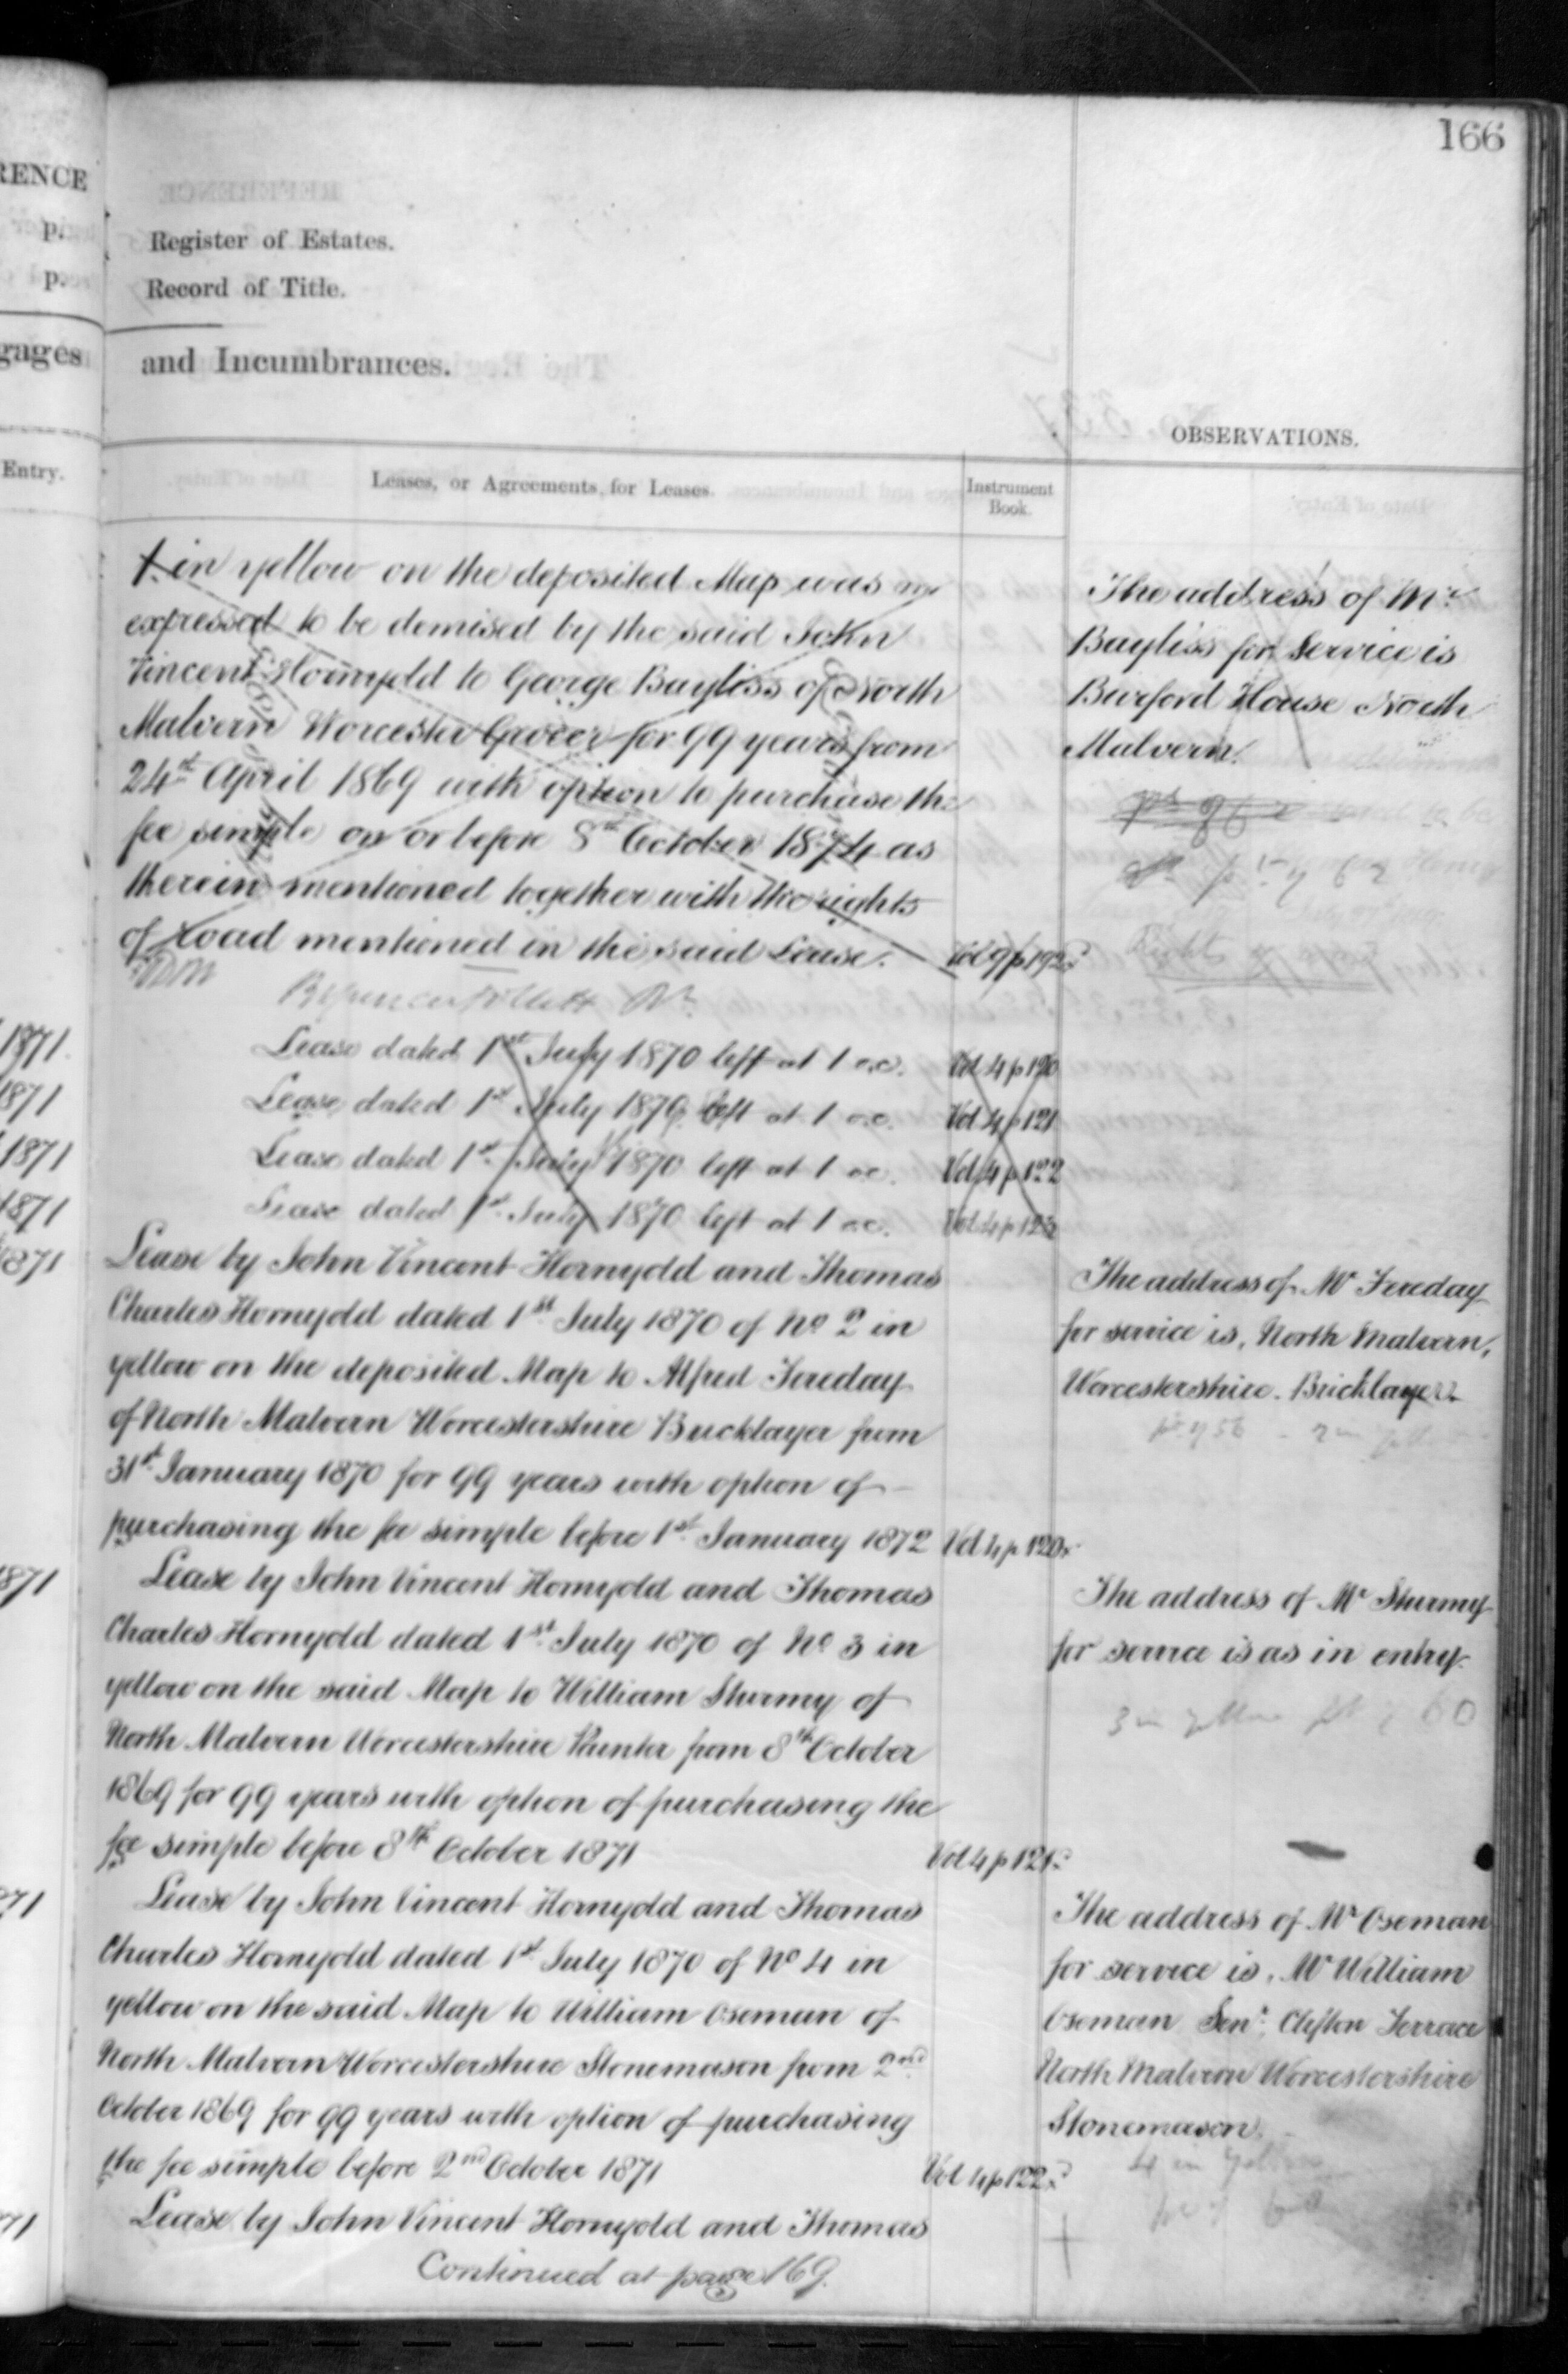 166
RENCE
p.
p.
gages
Entry.
Register of Estates.
Record of Title.
and Incumbrances.
OBSERVATIONS.
Leases, or Agreements, for Leases.
Instrument
Book.
1. in yellow on the deposited Map was
expressed to be demised by the said John
Vincent Hornyold to George Bayliss of North
Malvern Worcester Grocer for 99 years from
24th April 1869 with option to purchase the
fee simple on or before 8th October 1874 as
therein mentioned together with the rights
of road mentioned in the said Lease. Vol 9 p 192
The address of Mr
Bayliss for Service is
Burford House North
Malvern.
Rights of
1871 Lease dated 1st July 1870 left at 1 o.c. Vol 4 p 120
1871 Lease dated 1st July 1870 left at 1 o.c. Vol 4 p 121
1871 Lease dated 1st July 1870 left at 1 o.c. Vol 4 p 122
1871 Lease dated 1st July 1870 left at 1 o.c. Vol 4 p
1871 Lease by John Vincent Hornyold and Thomas
Charles Hornyold dated 1st July 1870 of No 2 in
yellow on the deposited Map to Alfred Fereday
of North Malvern Worcestershire Bricklayer from
31st January 1870 for 99 years with option of
purchasing the fee simple before 1st January 1872 Vol 4 p 120
The address of Mr Fereday
for service is, North Malvern,
Worcestershire. Bricklayer
1871 Lease by John Vincent Hornyold and Thomas
Charles Hornyold dated 1st July 1870 of No 3 in
yellow on the said Map to William Shurmy of
North Malvern Worcestershire Painter from 8th October
1869 for 99 years with option of purchasing the
fee simple before 8th October 1871 Vol 4 p 121
The address of Mr Shurmy
for service is as in entry.
3 in yellow 60
71 Lease by John Vincent Hornyold and Thomas
Charles Hornyold dated 1st July 1870 of No 4 in
yellow on the said Map to William Oseman of
North Malvern Worcestershire Stonemason from 2nd
October 1869 for 99 years with option of purchasing
the fee simple before 2nd October 1871 Vol 4 p 122
The address of Mr Oseman
for service is, Mr William
Oseman Senr Clifton Terrace
North Malvern Worcestershire
Stonemason
4 in yellow
71 Lease by John Vincent Hornyold and Thomas
Continued at page 169.